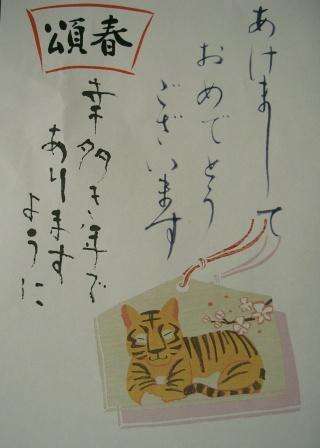 頌春
あけまして
おめでとう
ございます
幸多き年で
あります
ように